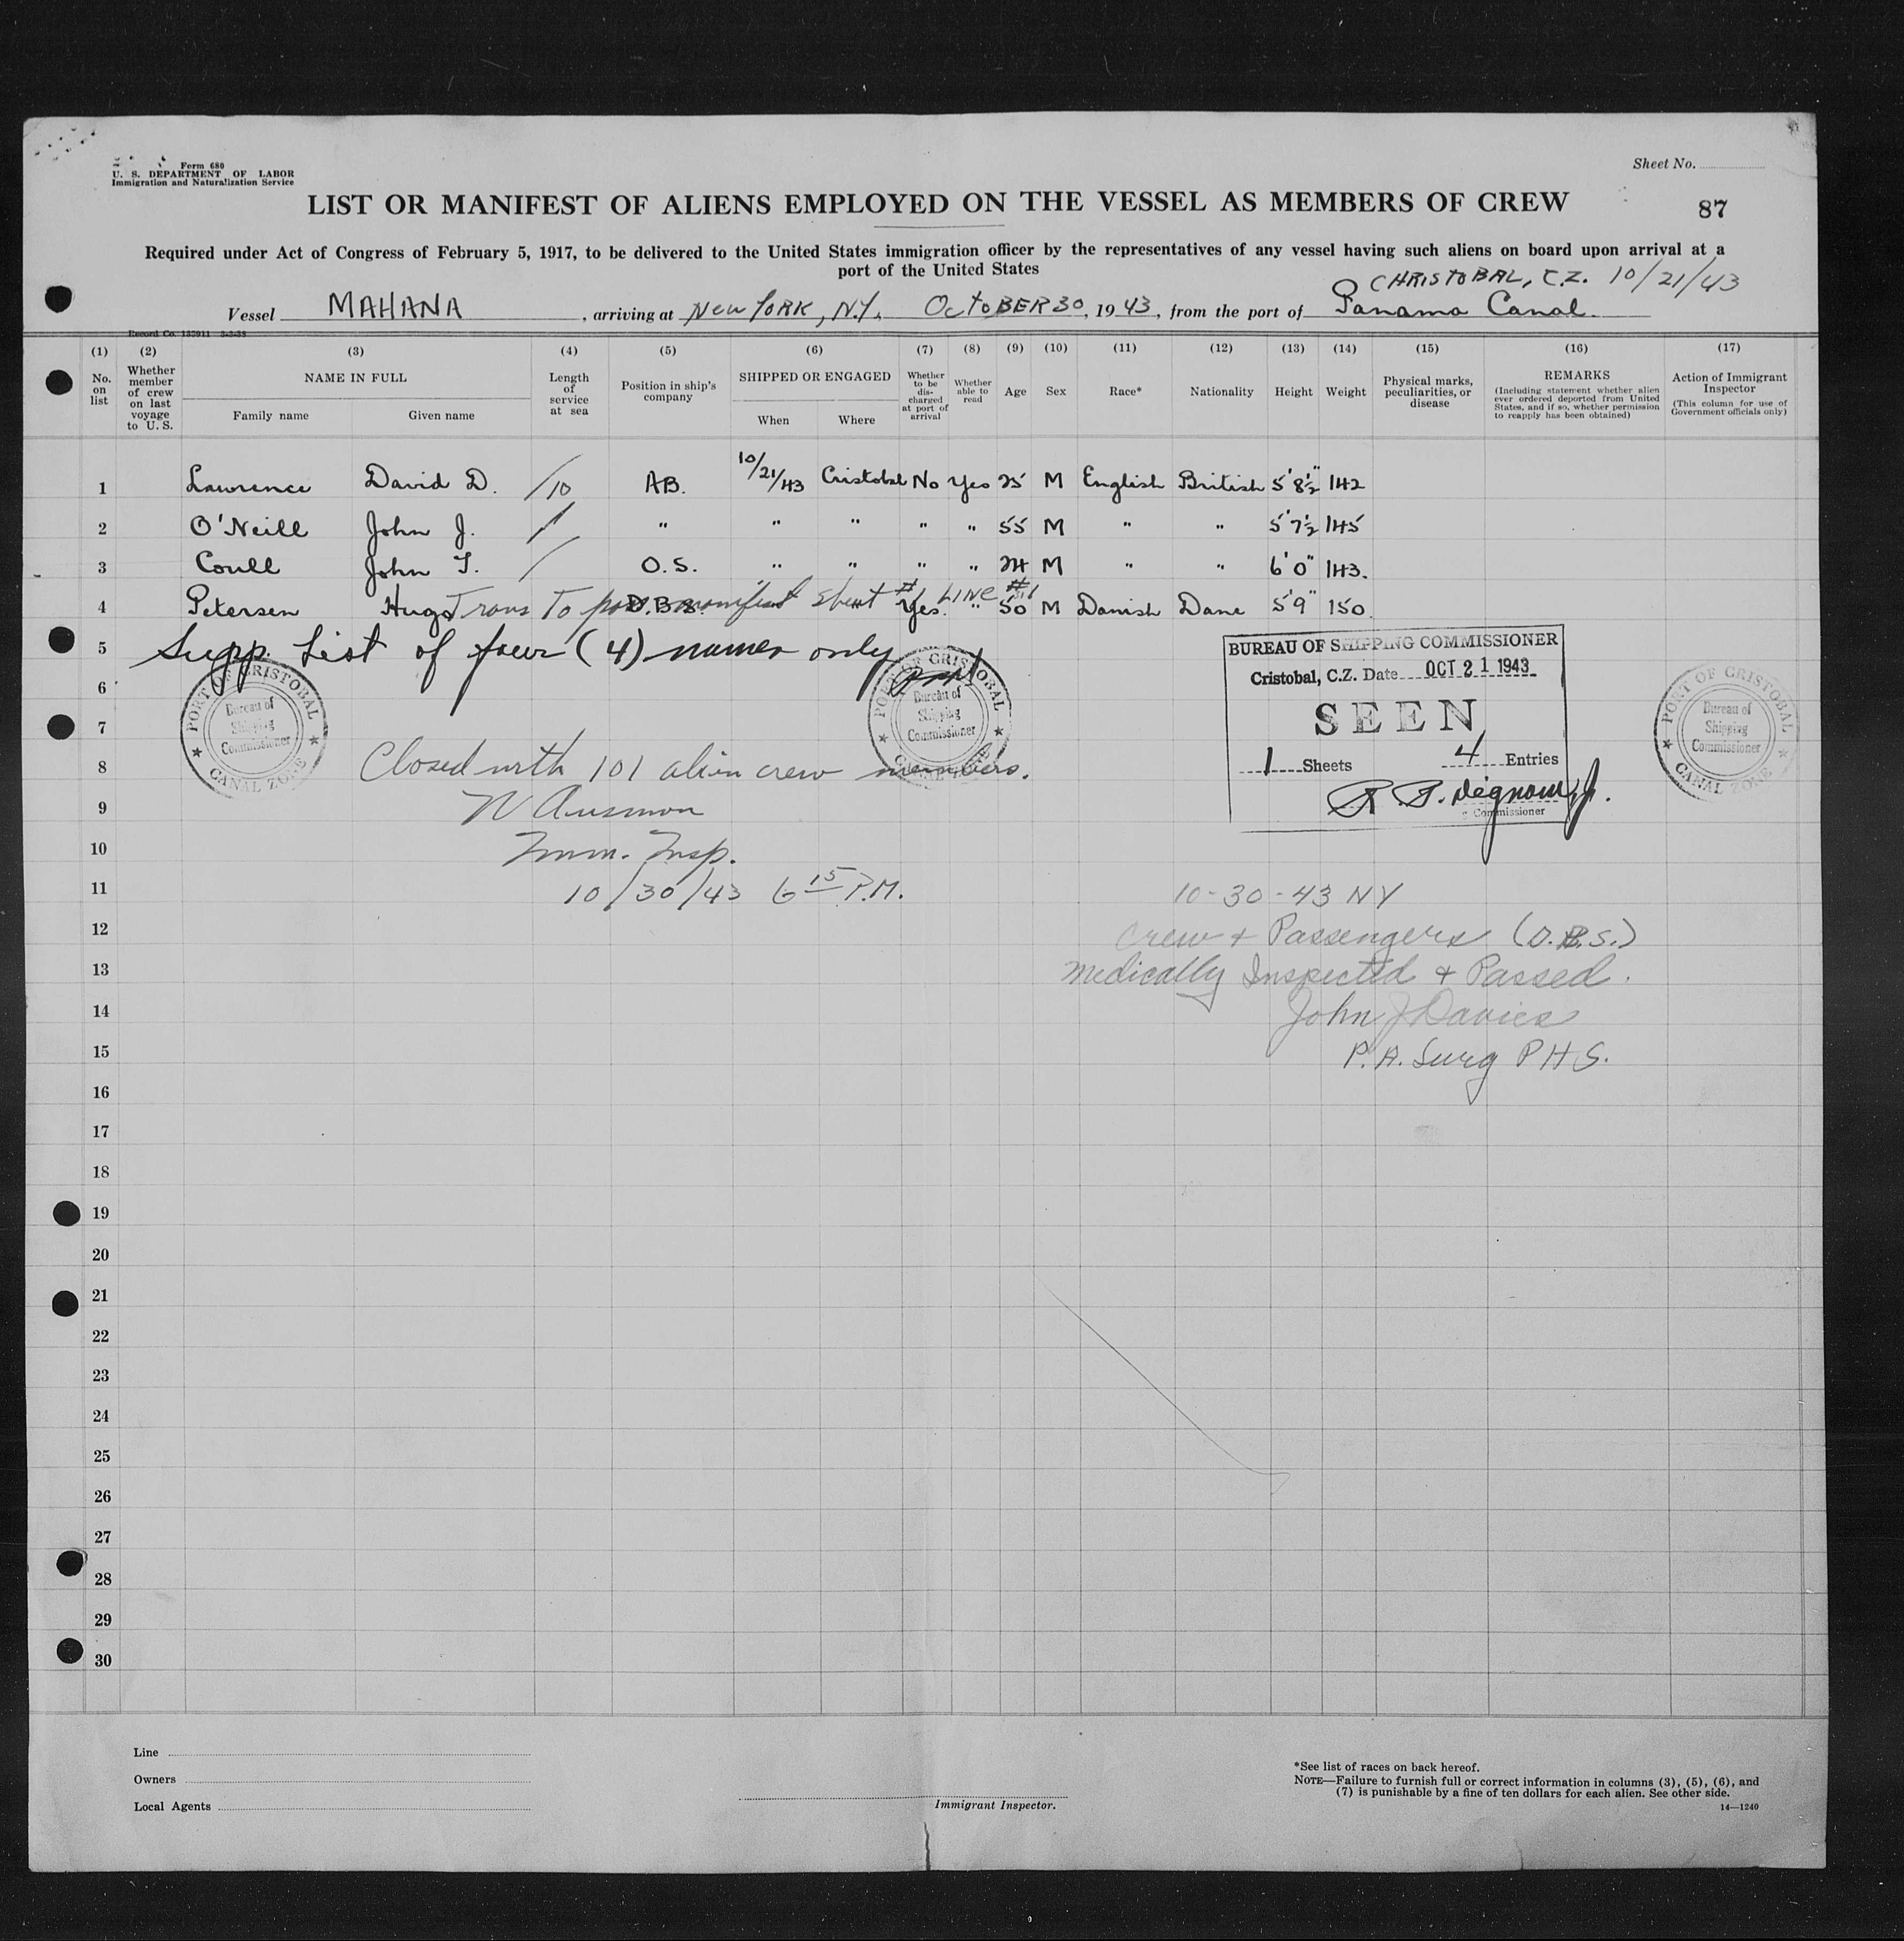 Form 680
U. S. DEPARTMENT OF LABOR
Immigration and Naturalization Service
Sheet No.
LIST OR MANIFEST OF ALIENS EMPLOYED ON THE VESSEL AS MEMBERS OF CREW
87
Required under Act of Congress of February 5, 1917, to be delivered to the United States immigration officer by the representatives of any vessel having such aliens on board upon arrival at a
port of the United States
CHRISTOBAL, C.Z. 10/21/43
Vessel MAHANA, arriving at New York, N.Y. OctOBER 30, 1943, from the port of Panama Canal.
(1) (2) (3) (4) (5) (6) (7) (8) (9) (10) (11) (12) (13) (14) (15) (16) (17)
No. on list
Whether member of crew on last voyage to U. S.
NAME IN FULL
Family name
Given name
Length of service at sea
Position in ship's company
SHIPPED OR ENGAGED
When
Where
Whether to be discharged at port of arrival
Whether able to read
Age
Sex
Race*
Nationality
Height
Weight
Physical marks, peculiarities, or disease
REMARKS
(Including statement whether alien ever ordered deported from United States, and if so, whether permission to reapply has been obtained)
Action of Immigrant Inspector
(This column for use of Government officials only)
1 Lawrence David D. /10 AB. 10/21/43 Cristobal No Yes 25 M English British 5'8½" 142
2 O'Neill John J. / " " " " " 55 M " " 5'7½ 145
3 Coull John T. / O.S. " " " " 24 M " " 6'0" 143.
4 Petersen Hugo D.B.S. " " Yes. " 50 M Danish Dane 5'9" 150.
Trans To manifest sheet # LINE #
5 Supp. List of four (4) names only
6
7
8 Closed with 101 alien crew members.
9
10 Imm. Insp.
11 10/30/43 6 15 P.M.
PORT OF CRISTOBAL
Bureau of
Shipping
Commissioner
CANAL ZONE
PORT OF CRISTOBAL
Bureau of
Shipping
Commissioner
CANAL ZONE
BUREAU OF SHIPPING COMMISSIONER
Cristobal, C.Z. Date OCT 21 1943
SEEN
1 Sheets 4 Entries
Commissioner
PORT OF CRISTOBAL
Bureau of
Shipping
Commissioner
CANAL ZONE
10-30-43 NY
12 Crew + Passengers (D.B.S.)
13 Medically Inspected + Passed.
14 John J Davies
15 P.A. Surg PHS.
16
17
18
19
20
21
22
23
24
25
26
27
28
29
30
Line
Owners
Local Agents
Immigrant Inspector.
*See list of races on back hereof.
NOTE—Failure to furnish full or correct information in columns (3), (5), (6), and
(7) is punishable by a fine of ten dollars for each alien. See other side.
14—1240